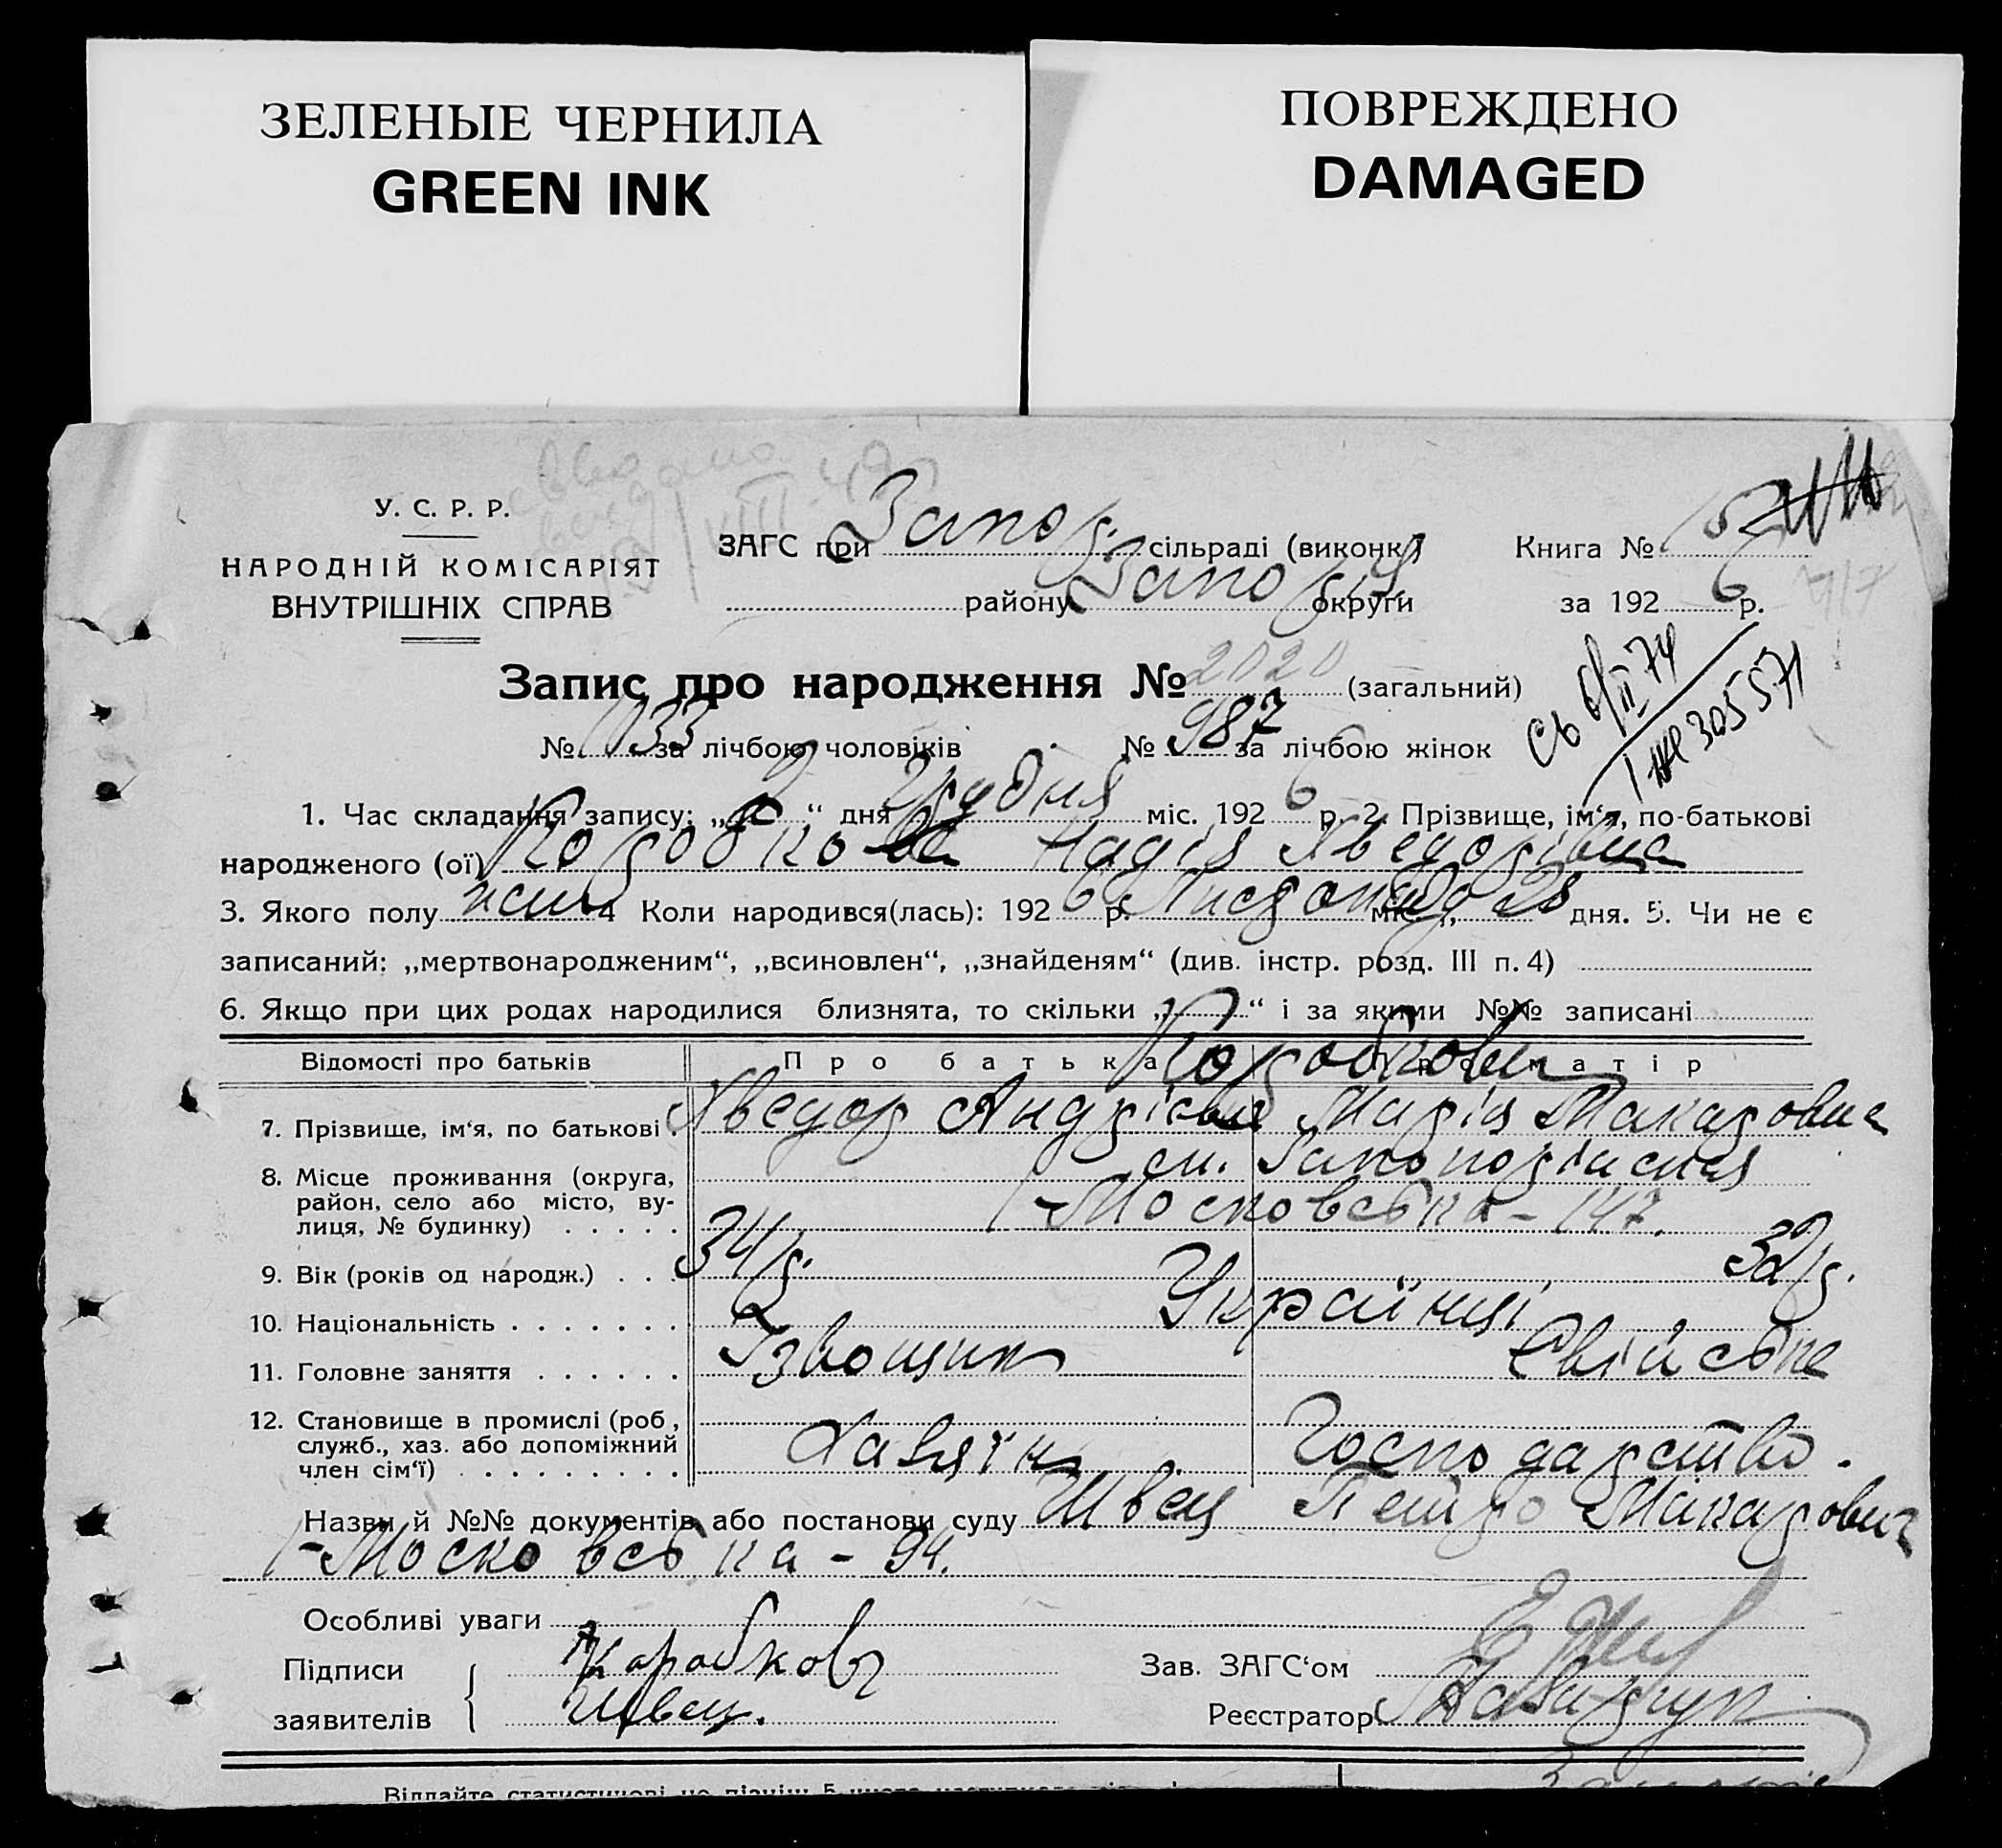 ЗЕЛЕНЫЕ ЧЕРНИЛА
GREEN INK
ПОВРЕЖДЕНО
DAMAGED
У. С. Р. Р.
НАРОДНІЙ КОМІСАРІЯТ
ВНУТРІШНІХ СПРАВ
ЗАГС при Запор. сільраді (виконк.) Книга №
району Запор округи за 1926 р.
Запис про народження № 2020 (загальний)
№ 1033 за лічбою чоловіків № 987 за лічбою жінок
305571
1. Час складання запису: „ “ дня Грудня міс. 1926 р. 2. Прізвище, ім‘я, по-батькові
народженого (ої) Коробкова Надія Хведорівна
3. Якого полу жин 4 Коли народився(лась): 1926 р. Листопад міс. „ 28 дня. 5. Чи не є
записаний: „мертвонародженим“, „всиновлен“, „знайденям“ (див. інстр. розд. III п. 4)
6. Якщо при цих родах народилися близнята, то скільки „ “ і за якими №№ записані
Відомості про батьків Про батька Про матір
Коробкови
7. Прізвище, ім‘я, по батькові Хведор Андрієвич Марія Макаровна
8. Місце проживання (округа, район, село або місто, вулиця, № будинку) ст. Запоріжжя
І-Московська - 147.
9. Вік (років од народж.) 34 р. 32 р.
10. Національність Українці
11. Головне заняття Ізвощик Свійське
12. Становище в промислі (роб., служб., хаз. або допоміжний член сім‘ї) Хазяїн Господарство.
Назви й №№ документів або постанови суду Швец Петро Макарович
І-Московська - 94.
Особливі уваги
Підписи заявителів Коробков
Швец.
Зав. ЗАГС‘ом
Реєстратор
Віддайте статистичові не пізніш 5 числа